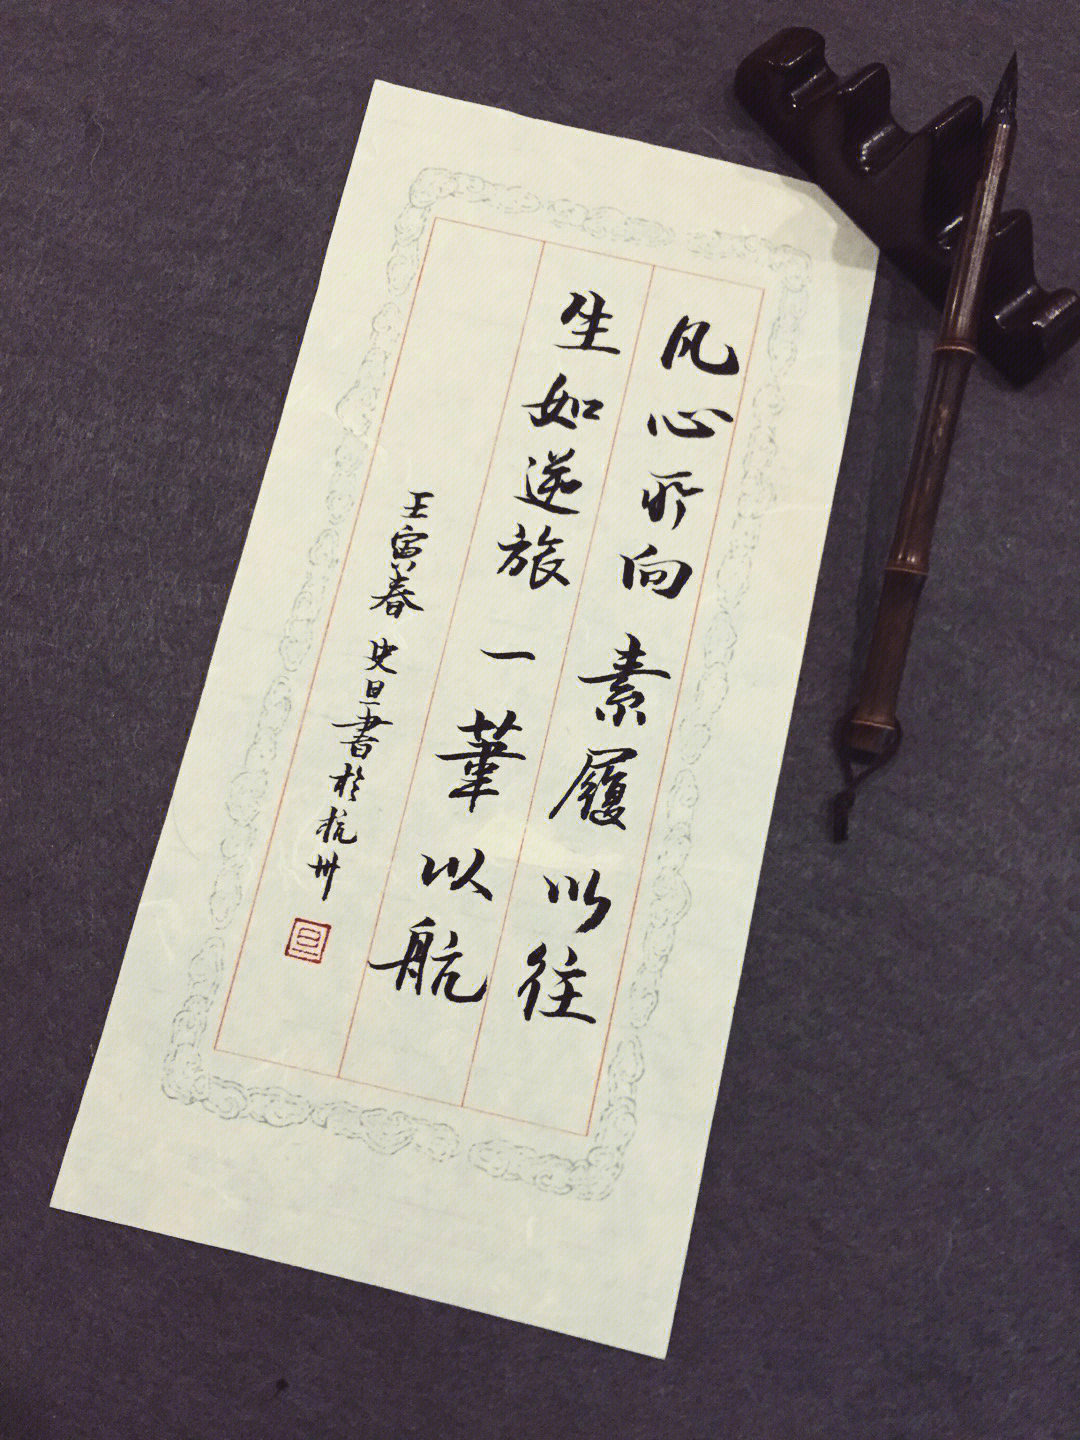 凡心所向素履以往
生如逆旅一葦以航
壬寅春史旦書於杭州
旦